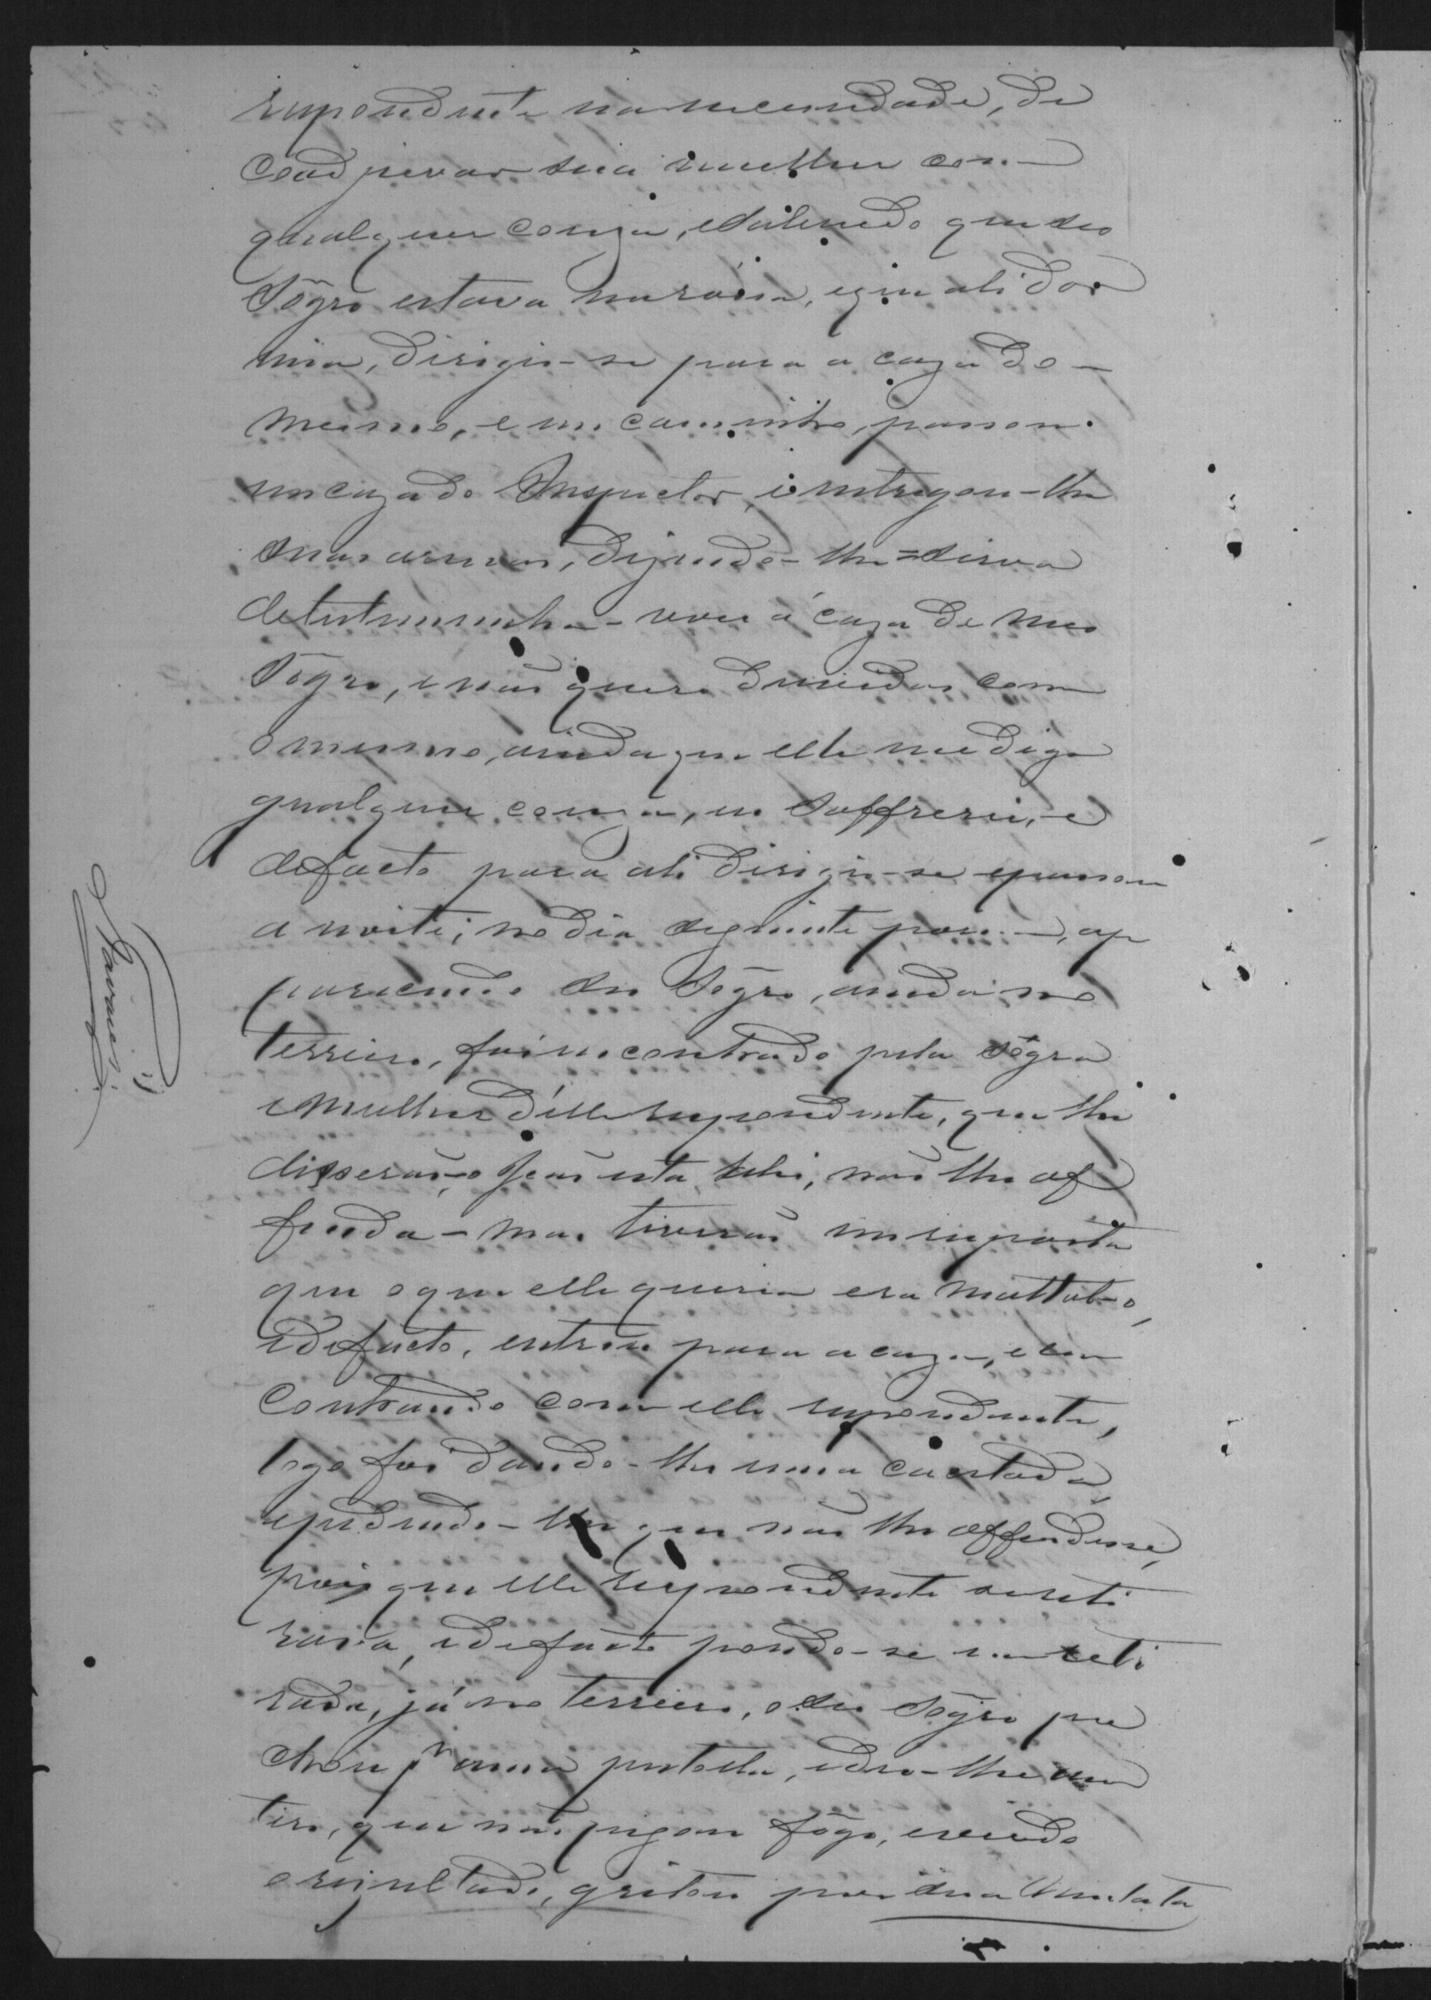 respondente na necessidade, de
coadjuvar sua mulher com
qualquer couza, e sabendo que seo
Sôgro estava na róssa, e que ali dor
mia, dirigio-se para a caza do
mesmo, e no caminho, passou
na caza do Inspector, e entregou-lhe
suas armas, dizendo-lhe = sirva
de testemunha - vou á caza de meo
Sôgro, e não quero duvidas com
o mesmo, ainda que elle me diga
qualquer couza, eu soffrerei, e
defacto para ali dirigio-se e passou
a noite; no dia seguinte porem, ap
parecendo seu Sôgro, ainda no
terreiro, foi incontrado pela sógra
e mulher d'elle respondente, que lhe
disserão, o João esta ahi, não lhe of
fenda - mas tiverão em resposta
que o que elle queria era mattal-o,
e defacto, entrou para a caza, e en
contrando com elle respondente,
logo foi dando-lhe uma cacetada,
e pedindo-lhe que não lhe offendesse,
pois que elle respondente se reti
rava, e defacto pondo-se em reti
rada, já no terreiro, o seu Sôgro pu
chou pr uma pistolla, e deo-lhe um
tiro, que não pegou fôgo, e vendo
o resultado, gritou por sua mulata